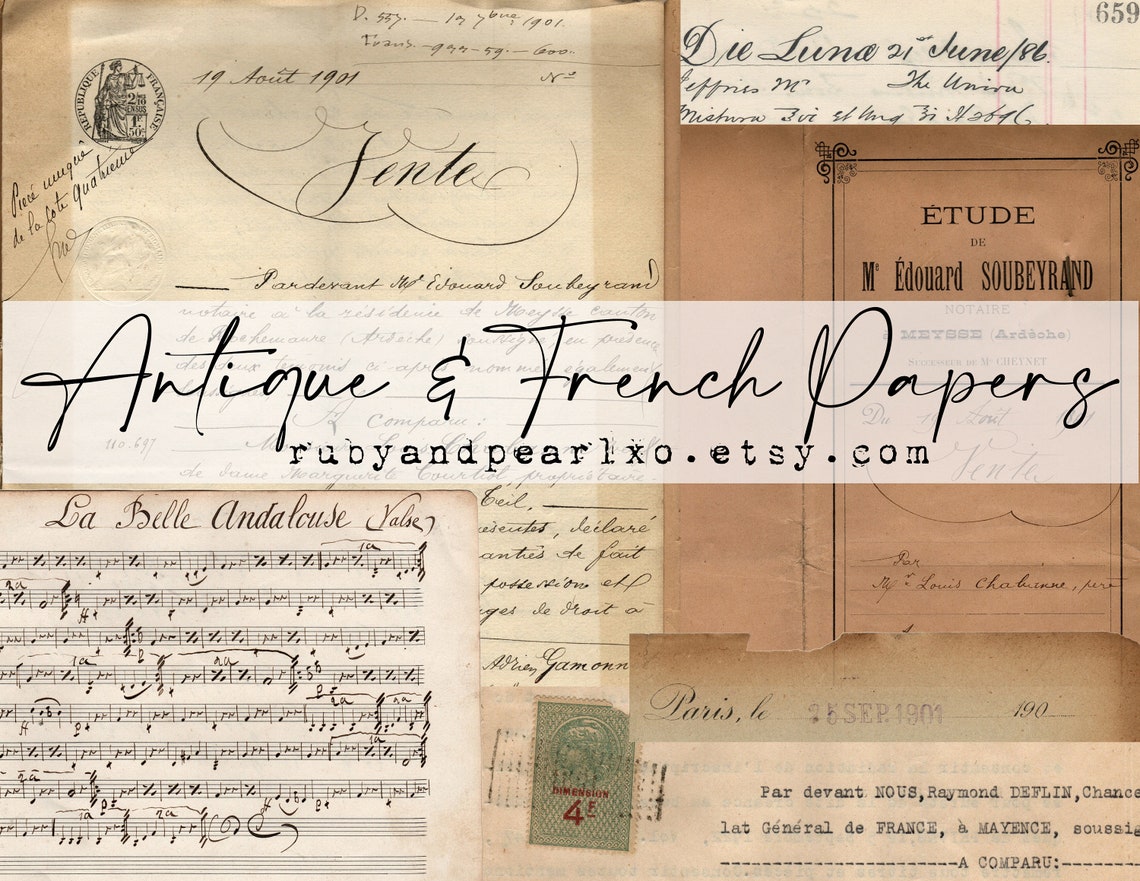 D. 557. — 19 1901.
19 Août 1901
Nº
RÉPUBLIQUE FRANÇAISE
2/10
EN SUS
1F.
50c
Vente
Pièce unique
de la cote quatrième
Pardevant Me Edouard Soubeyrand
notaire à la résidence de Meysse canton
de Rochemaure (Ardèche) soussigné, en présence
des deux témoins ci après nommé également
A Comparu :
110.697
de dame Marguerite Courtiol, propriétaire.
Teil,
déclaré
de fait
possession et
de droit à
Adrien Gamonn
659
Die Lunæ 21st June/86.
Jeffries Mr The Union
Mistura
ÉTUDE
DE
Me Édouard SOUBEYRAND
NOTAIRE
à MEYSSE (Ardèche)
SUCCESSEUR DE Me CHEYNET
Du 19 Août
Vente
Par
Mr Louis Chabanne, père
Antique & French Papers
rubyandpearlxo.etsy.com
La Belle Andalouse (Valse)
1a
2a
1a
2a
1a
2a
2a
1a
2a
1a
2a
DIMENSION
4F
Paris, le 25 SEP 1901 190
Par devant NOUS, Raymond DEFLIN, Chance
lat Général de FRANCE, à MAYENCE, soussig
A COMPARU: